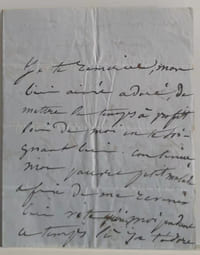 Je te remercie, mon
bien aimé adoré, de
mettre le temps à profit
loin de moi en te soi-
gnant bien. Continue
mon pauvre petit
afin de me revenir
bien vite pendant
ce temps là je t'adore